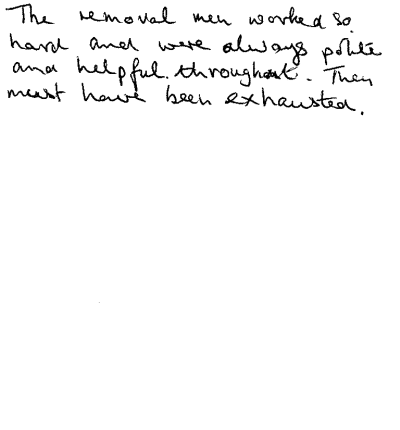 The removal men worked so
hard and were always polite
and helpful throughout. They
must have been exhausted.